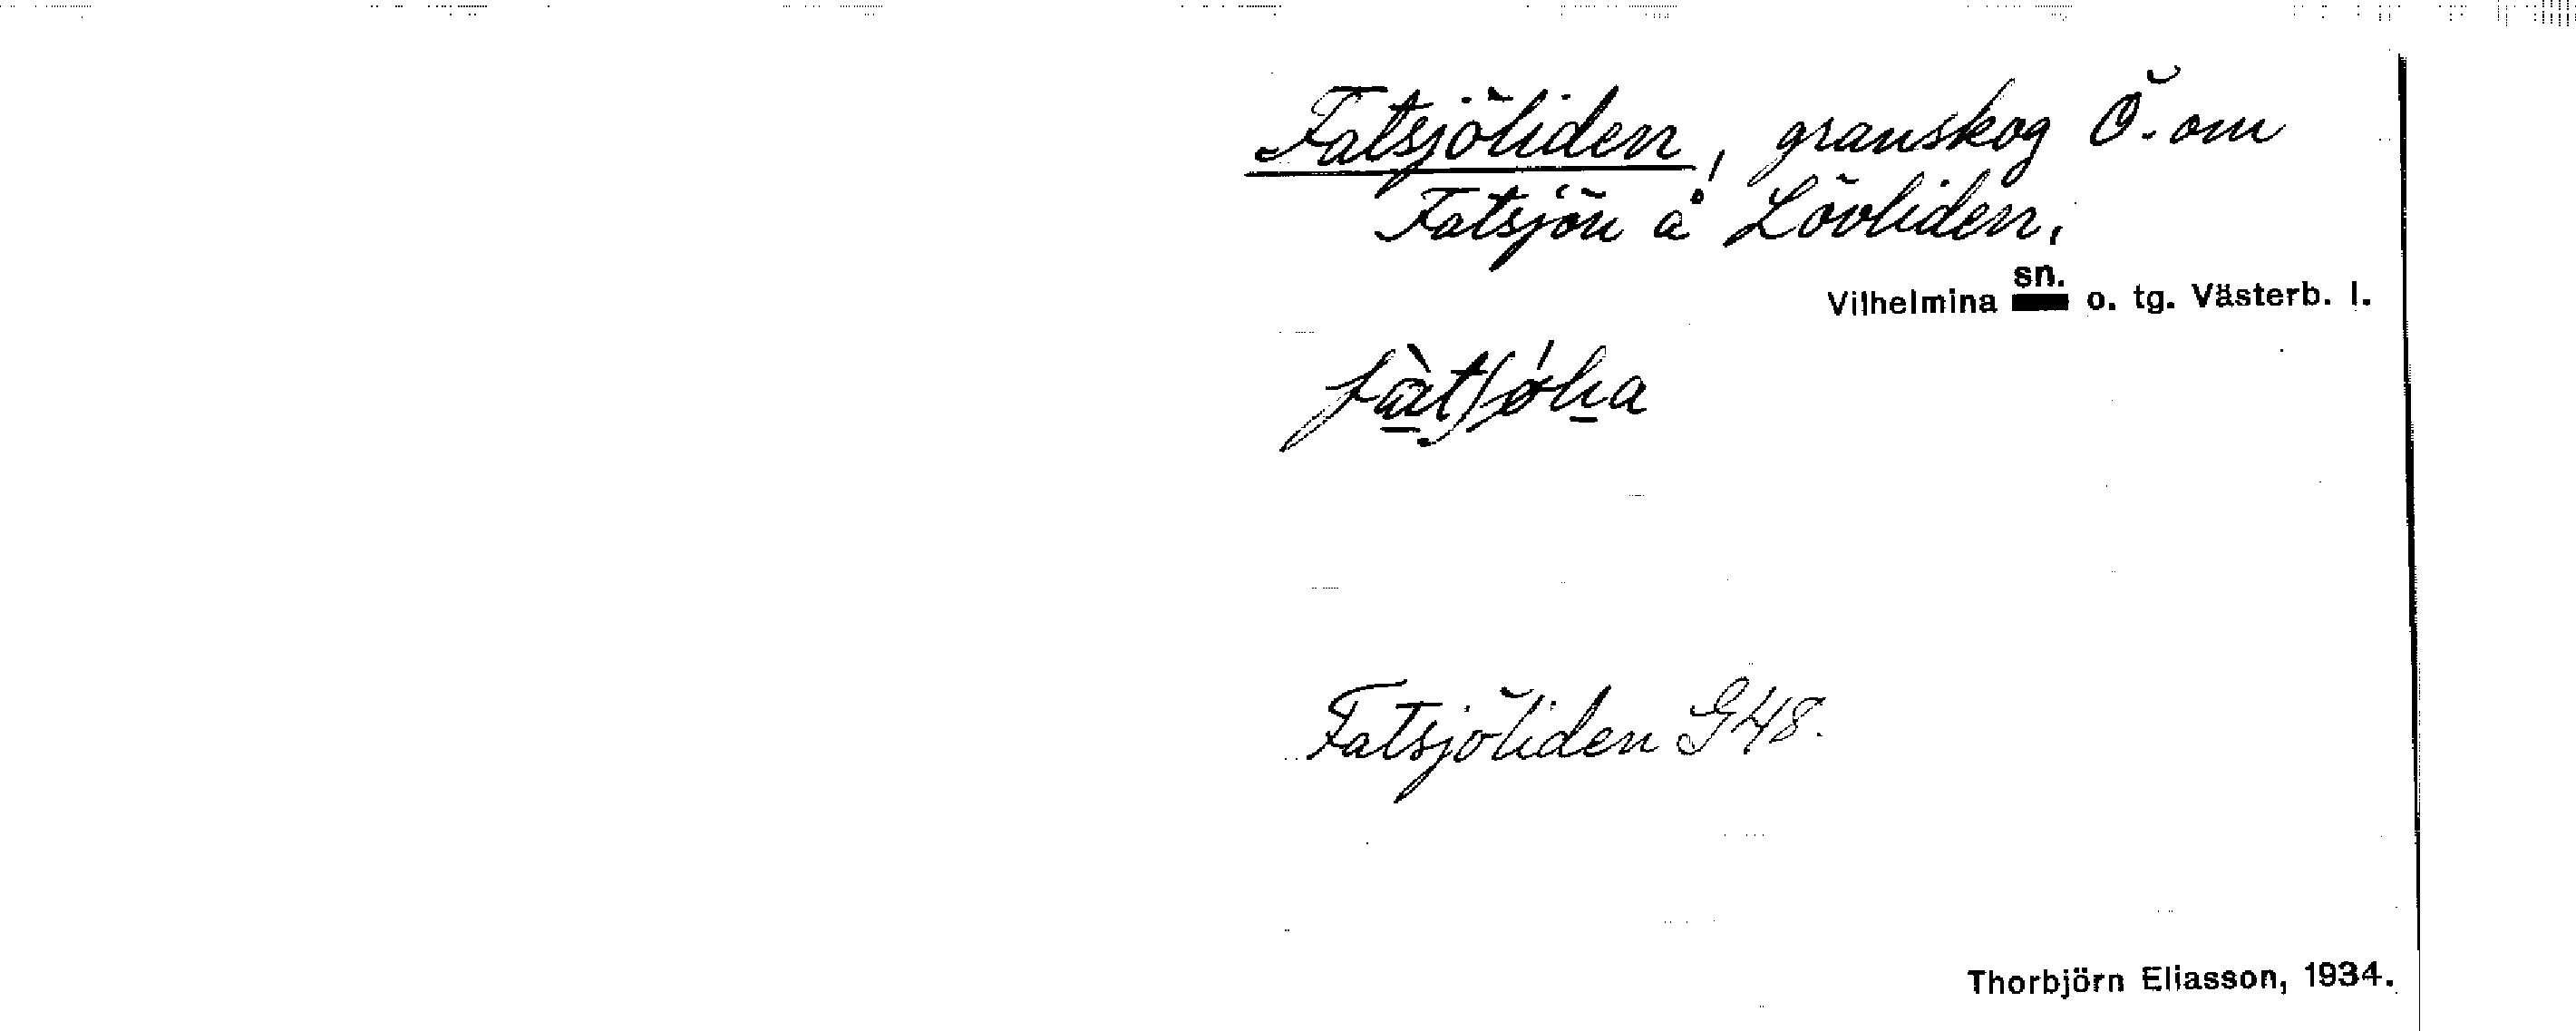 Fatsjöliden, granskog Ö. om
Fatsjön å Lövliden,
Vilhelmina sn. o. tg. Västerb. l.
Fatsjöliden G48.
Thorbjörn Eliasson, 1934.